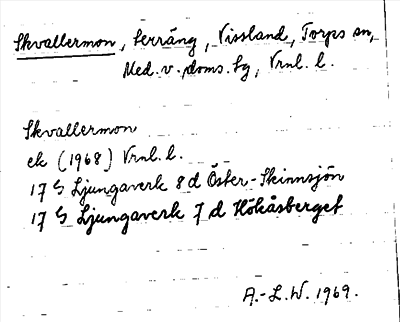 Skvallermon, terräng, Vissland, Torps sn,
Med. v. doms. tg, Vrnl. l.
Skvallermon
ek (1968) Vrnl. l.
17 G Ljungaverk 8 d Öster-Skinnsjön
17 G Ljungaverk 7 d Hökåsberget
A.-L.W. 1969.